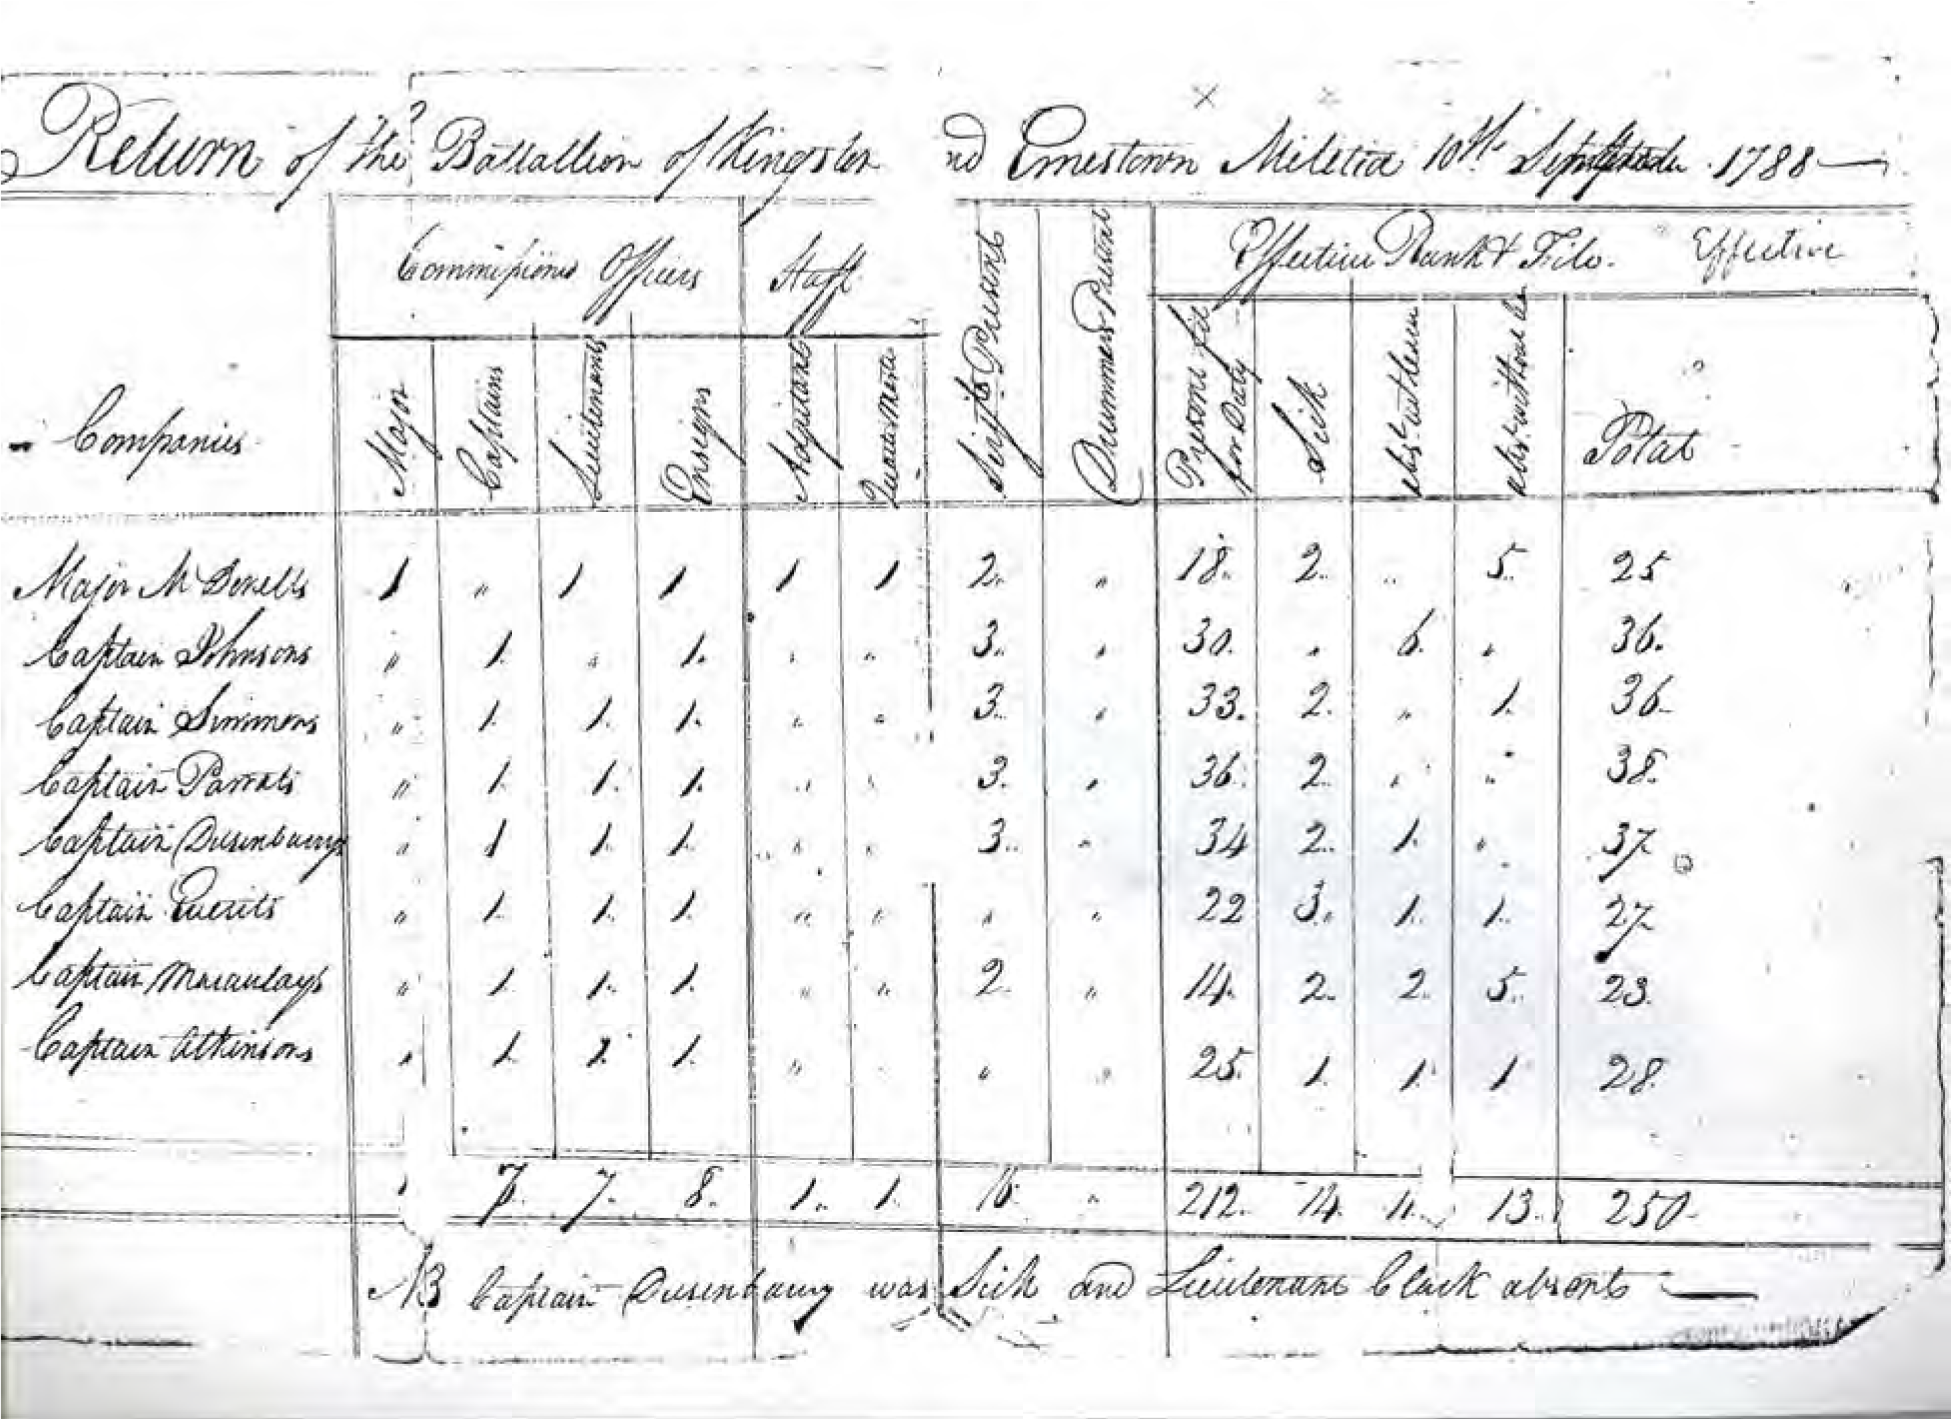 Return of the Battallion of Kingston nd Ernestown Militia 10th September 1788
Commissiond Officers Staff Effective Rank & File. Effective
Companies Major Captains Lieutenants Ensigns Adjutant Quarter Master Serjts Presents Drummers Present Present fit for Duty Sick Abst. with leave Abst. without le Total
Major McDonells 1 " 1 1 1 1 2 " 18 2 " 5 25
Captain Johnsons " 1 " 1 " " 3 " 30 " 6 " 36
Captain Simmons " 1 1 1 " " 3 " 33 2 " 1 36
Captain Parrots " 1 1 1 " " 3 " 36 2 " " 38
Captain Dusenburys " 1 1 1 " " 3 " 34 2 1 " 37
Captain Everits " 1 1 1 " " " " 22 3 1 1 27
Captain Macaulays " 1 1 1 " " 2 " 14 2 2 5 23
Captain Atkinsons " 1 1 1 " " " " 25 1 1 1 28
1 7 7 8 1 1 16 " 212 14 11 13 250
NB Captain Dusenbury was Sick and Lieutenant Clark absent